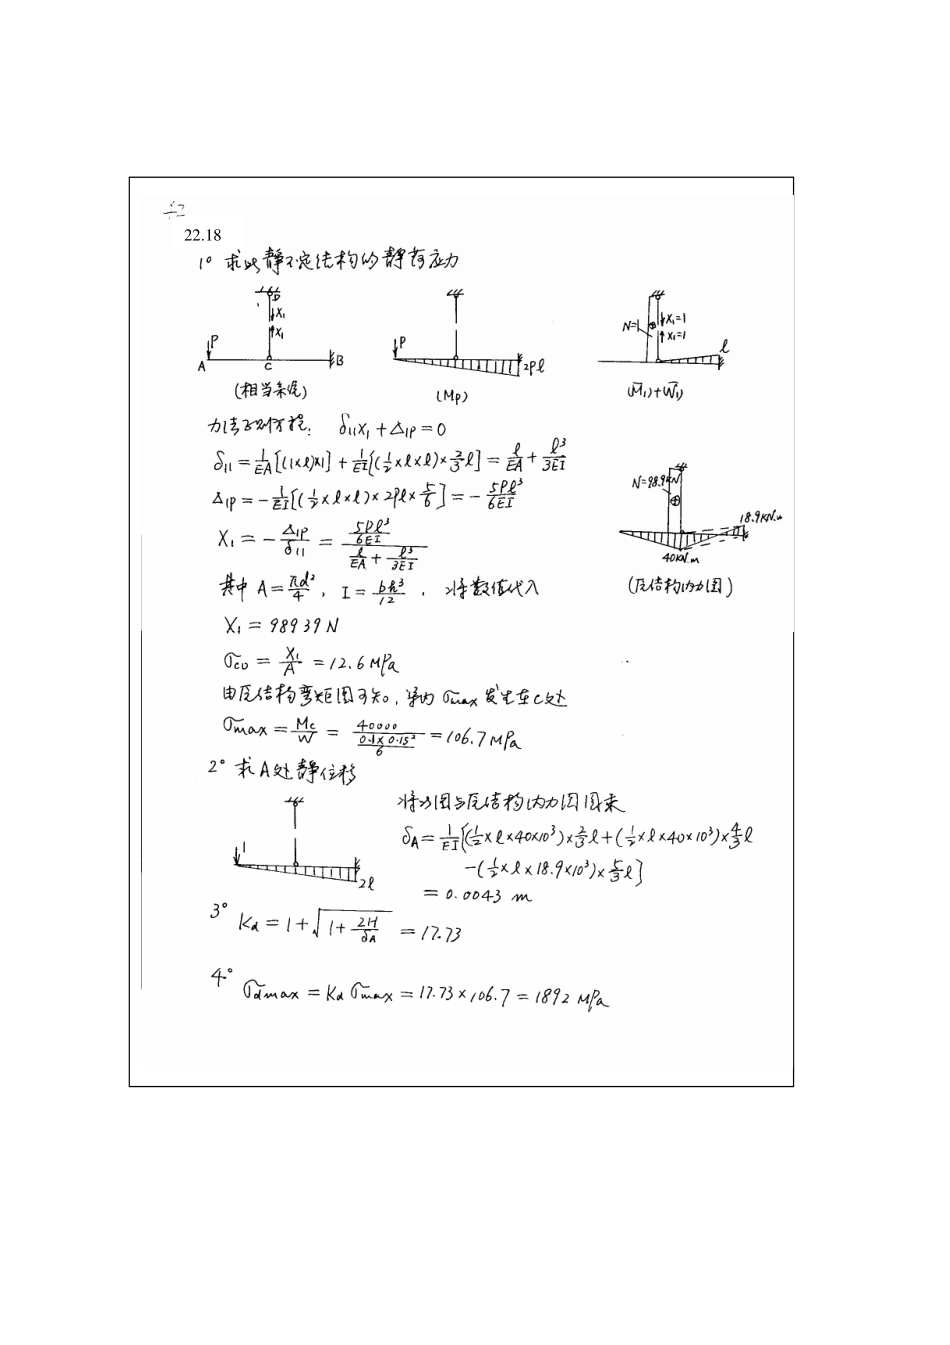 22.18
1° 求此静不定结构的静荷应力
D
X₁
X₁
P
A
C
B
P
2Pl
N=1
X₁=1
X₁=1
l
(相当系统)
(Mp)
(M̄₁)+(N̄₁)
力法正则方程: δ₁₁X₁+Δ₁P=0
δ₁₁=1/EA[(1×l)×1]+1/EI[(1/2×l×l)×2/3l]=l/EA+l³/3EI
Δ₁P=-1/EI[(1/2×l×l)×2Pl×5/6]=-5Pl³/6EI
X₁=-Δ₁P/δ₁₁=(5Pl³/6EI)/(l/EA+l³/3EI)
N=98.9kN
18.9kN.m
40kN.m
其中 A=πd²/4, I=bh³/12, 将数值代入
(原结构内力图)
X₁=98939N
σCD=X₁/A=12.6MPa
由原结构弯矩图可知。梁内σmax发生在C处
σmax=Mc/W=40000/(0.1×0.15²/6)=106.7MPa
2° 求A处静位移
1
2l
将此图与原结构内力图图乘
δA=1/EI[(1/2×l×40×10³)×2/3l+(1/2×l×40×10³)×4/3l
-(1/2×l×18.9×10³)×5/3l]
=0.0043 m
3° Kd=1+√(1+2H/δA)=17.73
4° σdmax=Kdσmax=17.73×106.7=1892 MPa